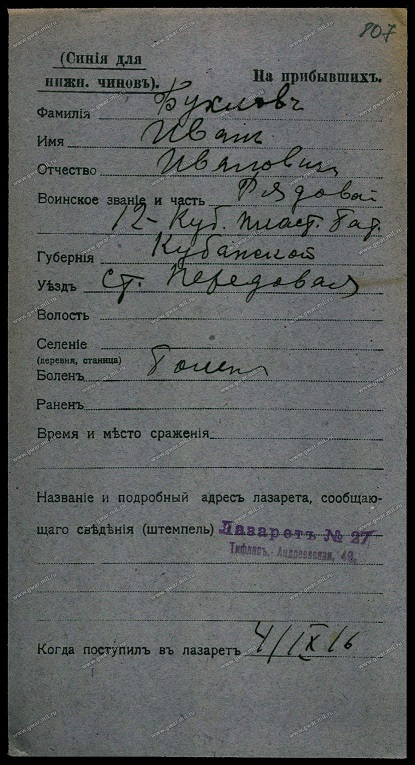 807
(Синія для
нижн. чиновъ).
На прибывшихъ.
Фамилія Бухловъ
Имя Иванъ
Отчество Ивановичъ
Воинское званіе и часть Рядовой
12-Куб. пласт. бат.
Губернія Кубанской
Уѣздъ ст. Передовая
Волость
Селеніе
(деревня, станица)
Боленъ Боленъ
Раненъ
Время и мѣсто сраженія
Названіе и подробный адресъ лазарета, сообщаю-
щаго свѣдѣнія (штемпель) Лазаретъ № 27
Тифлисъ, Андреевская, 49.
Когда поступилъ въ лазаретъ 4/IX 16
www.gwar.mil.ru